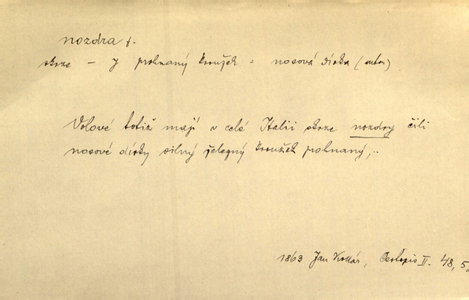 nozdra f.
skrze – y prohnaný kroužek = nosová dírka (autor)
Volové totiž mají v celé Italii skrze nozdry čili
nosové dírky silný železný kroužek prohnaný,..
1863 Jan Kollár, Cestopis II. 48, 5.